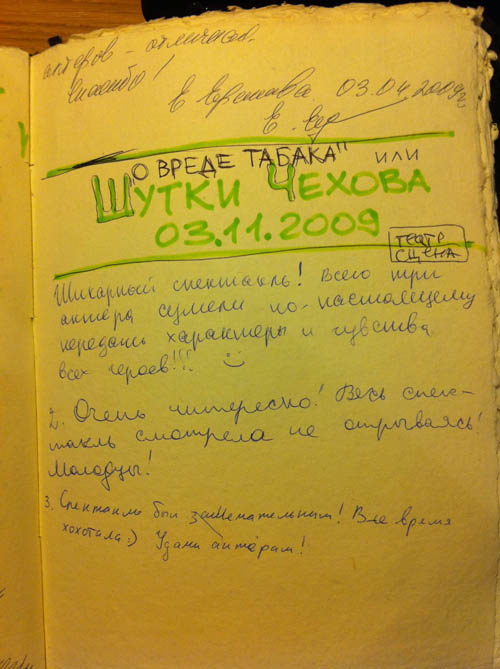 актеров - отличная.
Спасибо!
03.04.2009г
Е.
"О ВРЕДЕ ТАБАКА" ИЛИ
ШУТКИ ЧЕХОВА
03.11.2009
ТЕАТР
СЦЕНА
Шикарный спектакль! Всего три
актёра сумели по-настоящему
передать характеры и чувства
всех героев!!! :)
2. Очень интересно! Весь спек-
такль смотрела не отрываясь!
Молодцы!
3. Спектакль был замечательным! Все время
хохотала:) Удачи актёрам!